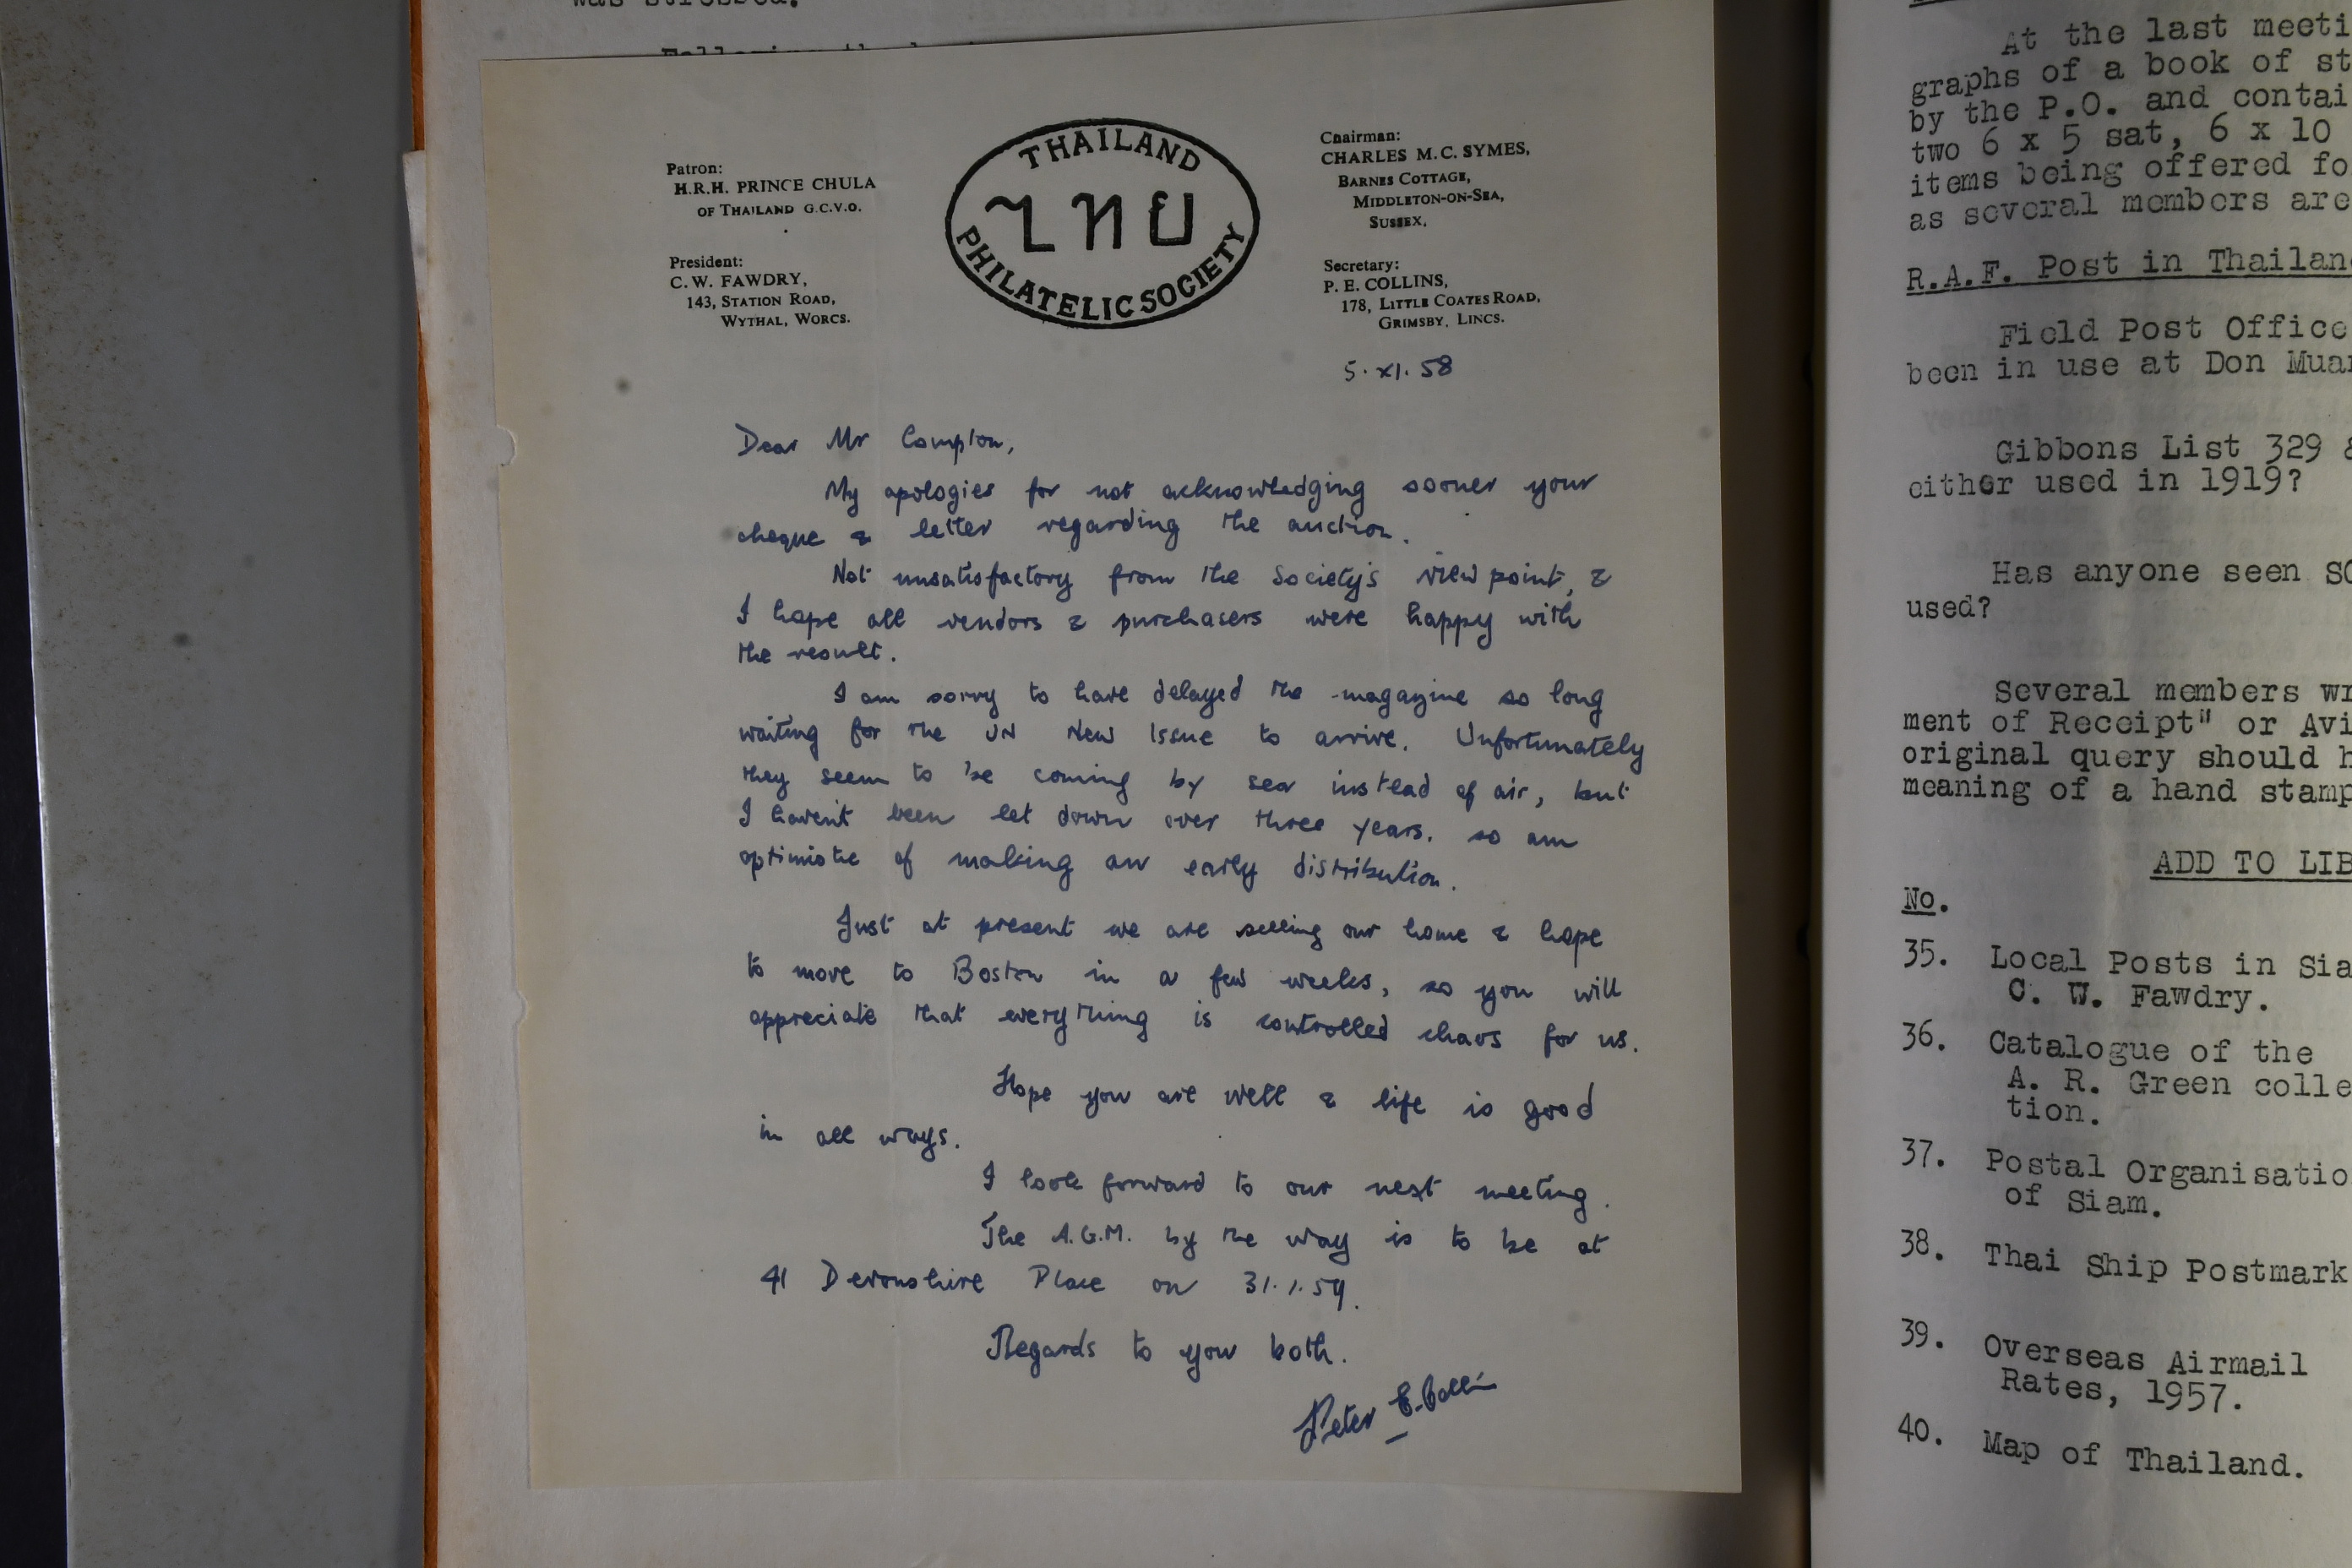 was stressed.
Patron:
H.R.H. PRINCE CHULA
OF THAILAND G.C.V.O.
President:
C. W. FAWDRY,
143, STATION ROAD,
WYTHAL, WORCS.
THAILAND
ไทย
PHILATELIC SOCIETY
Chairman:
CHARLES M. C. SYMES,
BARNES COTTAGE,
MIDDLETON-ON-SEA,
SUSSEX.
Secretary:
P. E. COLLINS,
178, LITTLE COATES ROAD,
GRIMSBY, LINCS.
5. XI. 58
Dear Mr Compton,
My apologies for not acknowledging sooner your
cheque & letter regarding the auction.
Not unsatisfactory from the Society's view point, &
I hope all vendors & purchasers were happy with
the result.
I am sorry to have delayed the magazine so long
waiting for the UN New Issue to arrive. Unfortunately
they seem to be coming by sea instead of air, but
I havent been let down over three years. so am
optimistic of making an early distribution.
Just at present we are selling our home & hope
to move to Boston in a few weeks, so you will
appreciate that everything is controlled chaos for us.
Hope you are well & life is good
in all ways.
I look forward to our next meeting.
The A.G.M. by the way is to be at
41 Devonshire Place on 31.1.59.
Regards to you both.
Peter E. Collins
At the last meeti
graphs of a book of st
by the P.O. and contai
two 6 x 5 sat, 6 x 10
items being offered fo
as several members are
R.A.F. Post in Thailan
Field Post Office
been in use at Don Muan
Gibbons List 329 &
either used in 1919?
Has anyone seen SG
used?
Several members wr
ment of Receipt" or Avi
original query should h
meaning of a hand stamp
ADD TO LIB
No.
35. Local Posts in Sia
C. W. Fawdry.
36. Catalogue of the
A. R. Green colle
tion.
37. Postal Organisatio
of Siam.
38. Thai Ship Postmark
39. Overseas Airmail
Rates, 1957.
40. Map of Thailand.